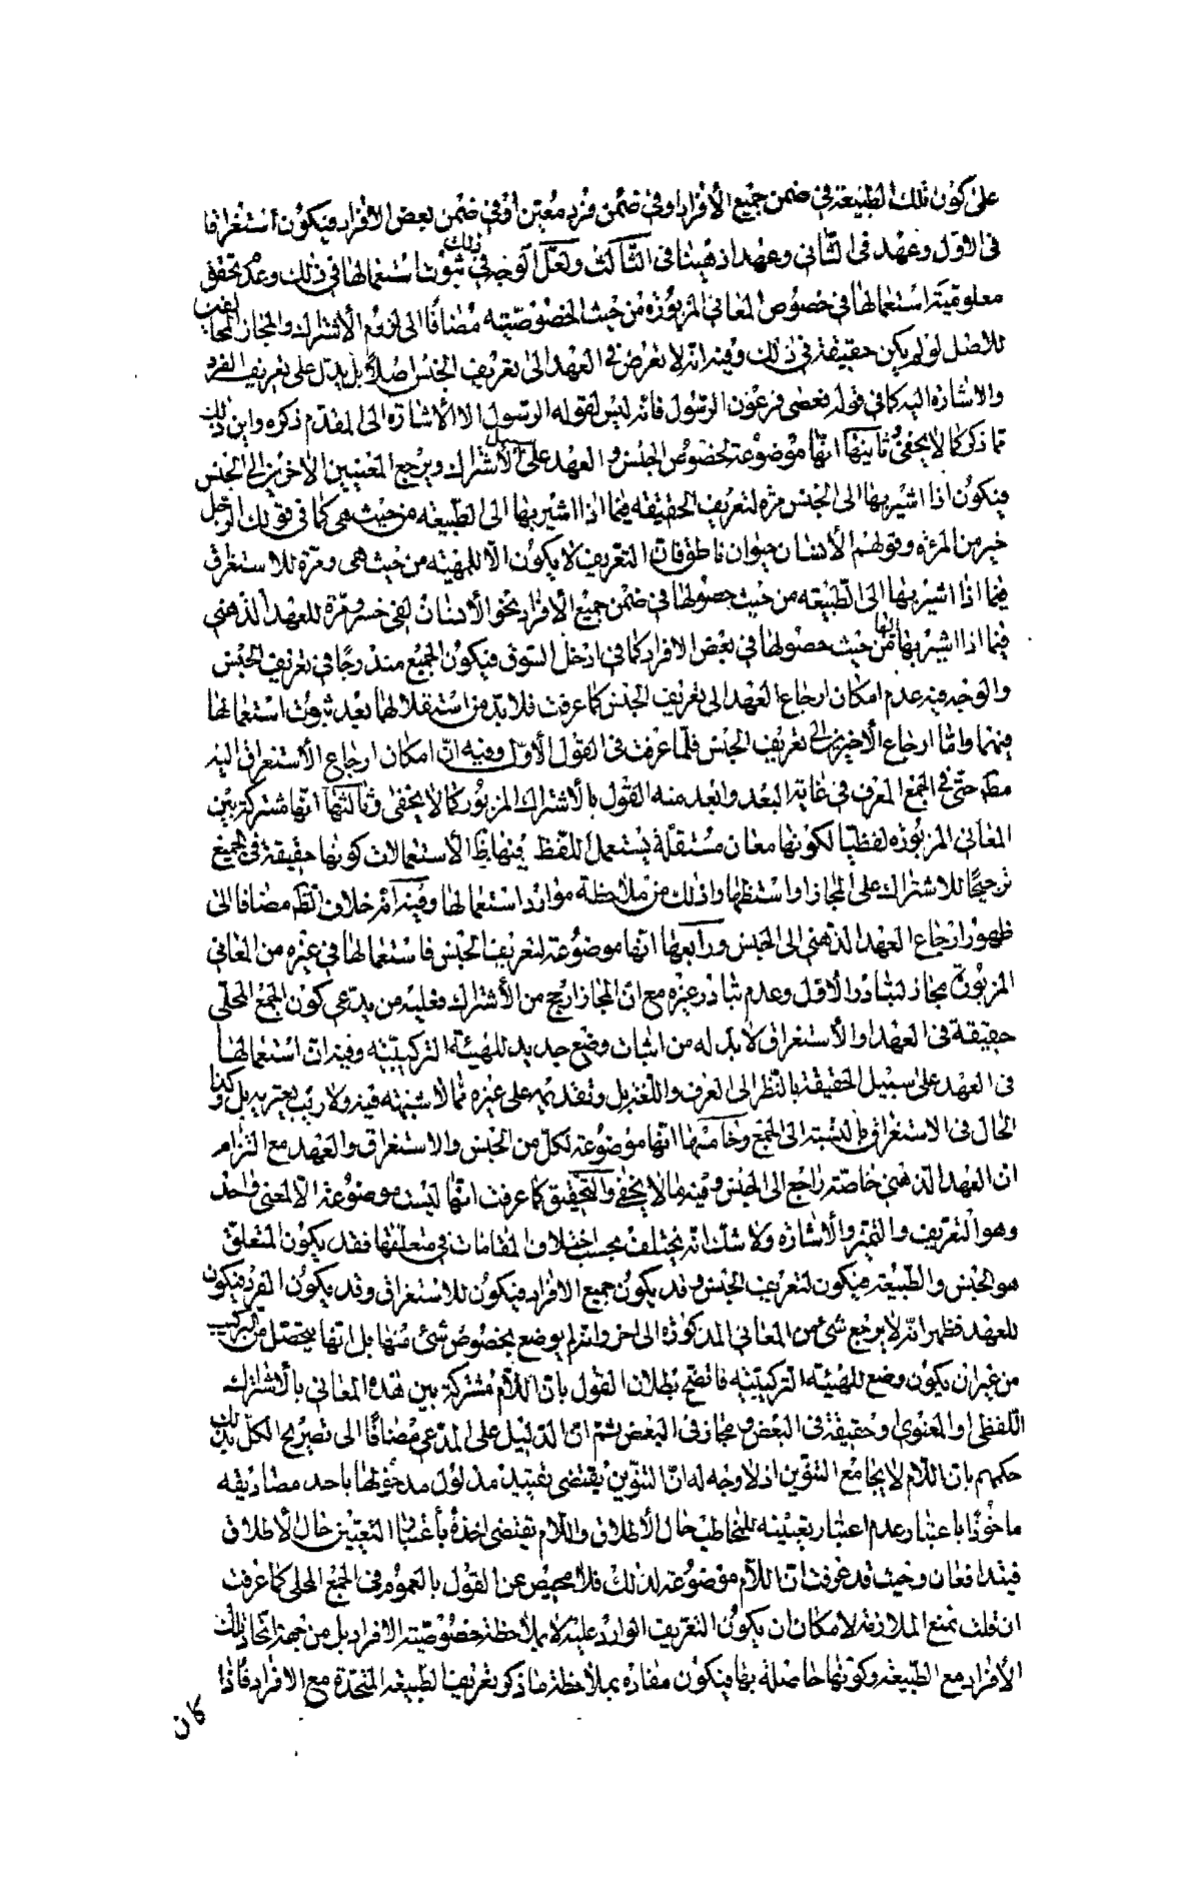 على كون تلك الطبيعة في ضمن جميع الأفراد او في ضمن فرد معين او في ضمن بعض الافراد فيكون استغراقا
في الاول وعهد في الثاني وعهدا ذهنيا في الثالث ولعل الوجه في ذلك ثبوت استعمالها في ذلك وعدم تحقق
معلومية استعمالها في خصوص المعاني المزبورة من حيث الخصوصيته مضافا الى لزوم الأشتراك والمجاز المخالفين
للاصل لو لم يكن حقيقة في ذلك وفيه انه لا تعرض في العهد الى تعريف الجنس اصلا بل يدل على تعريف الفرد
والاشارة اليه كما في قوله فعصى فرعون الرسول فانه ليس لقوله الرسول الا الأشارة الى المقدم ذكره واين ذلك
مما ذكر كما لا يخفى ثانيها انها موضوعة لخصوص الجنس والعهد على سبيل الاشتراك ويرجع المعنيين الاخرين الى الجنس
فيكون اذا اشير بها الى الجنس مرة لتعريف الحقيقة فيما اذا اشير بها الى الطبيعة من حيث هي كما في قولك الرجل
خير من المرئة وقولهم الأنسان حيوان ناطق فان التعريف لا يكون الا للمهية من حيث هي ومرة للاستغراق
فيما اذا اشير بها الى الطبيعة من حيث حصولها في ضمن جميع الأفراد نحو الأنسان لفي خسر ومرة للعهد الذهني
فيما اذا اشير بها اليها من حيث حصولها في بعض الافراد كما في ادخل السوق فيكون الجميع مندرجا في تعريف الجنس
والوجه فيه عدم امكان ارجاع العهد الى تعريف الجنس كما عرفت فلا بد من استقلالها بعد ثبوت استعمالها
فيهما واما ارجاع الأخيرين الى تعريف الجنس فلما عرفت في القول الأول وفيه ان امكان ارجاع الأستغراق اليه
مط حتى في الجمع المعرف في غاية البعد وابعد منه القول بالأشتراك المزبور كما لا يخفى وثالثها انها مشتركة بين
المعاني المزبورة لفظيا لكونها معان مستقلة يستعمل اللفظ فيها الأستعمالات كونها حقيقة في الجميع
ترجيحا للاشتراك على المجاز او استظهارا ذلك من ملاحظة موارد استعمالها وفيه انه خلاف الظم مضافا الى
ظهور ارجاع العهد الذهني الى الجنس ورابعها انها موضوعة لتعريف الجنس فاستعمالها في غيره من المعاني
المزبورة مجاز لتبادر الاول وعدم تبادر غيره مع ان المجاز ارجح من الأشتراك فعليه من يدعي كون الجمع المحلى
حقيقة في العهد او الأستغراق لا بد له من اثبات وضع جديد للهيئة التركيبية وفيه ان استعمالها
في العهد على سبيل الحقيقة بالنظر الى العرف واللغة وتقديمه على غيره مما لا شبهة فيه ولا ريب يعتريه بل وكذا
الحال في الاستغراق بالنسبة الى الجمع وخامسها انها موضوعة لكل من الجنس والاستغراق والعهد مع التزام
ان العهد الذهني خاصة راجع الى الجنس وفيه ما لا يخفى والتحقيق كما عرفت انها ليست موضوعة الا لمعنى واحد
وهو التعريف والتميز والأشارة ولا شك انه يختلف بحسب اختلاف المقامات في متعلقها فقد يكون المتعلق
هو الجنس والطبيعة فيكون لتعريف الجنس وقد يكون جميع الافراد فيكون للاستغراق وقد يكون الفرد فيكون
للعهد فظهر انه لا يرجع شئ من المعاني المذكورة الى اخر وانه لم يوضع بخصوص شئ منها بل انها يتحصل من التركيب
من غير ان يكون وضع للهيئة التركيبية فاتضح بطلان القول بان اللام مشتركة بين هذه المعاني بالأشتراك
اللفظي او المعنوي او حقيقة في البعض ومجاز في البعض ثم ان الدليل على المدعى مضافا الى تصريح الكل بذلك
حكمهم بان اللام لا يجامع التنوين اذ لا وجه له ان التنوين يقتضي تقييد مدلول مدخولها باحد مصاديقه
ماخوذا باعتبار عدم اعتبار تعيينه للمخاطب حال الأطلاق واللام تقتضى اخذه بأعتبار التعيين حال الأطلاق
فيتدافعان وحيث قد عرفت ان اللام موضوعة لذلك فلا محيص عن القول بالعموم في الجمع المحلى كما عرفت
ان قلت نمنع الملازمة لامكان ان يكون التعريف الوارد عليه لا بملاحظة خصوصية الافراد بل من جهة اتحاد تلك
الأفراد مع الطبيعة وكونها حاصلة بها فيكون مفاده بملاحظة ما ذكر تعريف الطبيعة المتحدة مع الافراد فاذا
كان